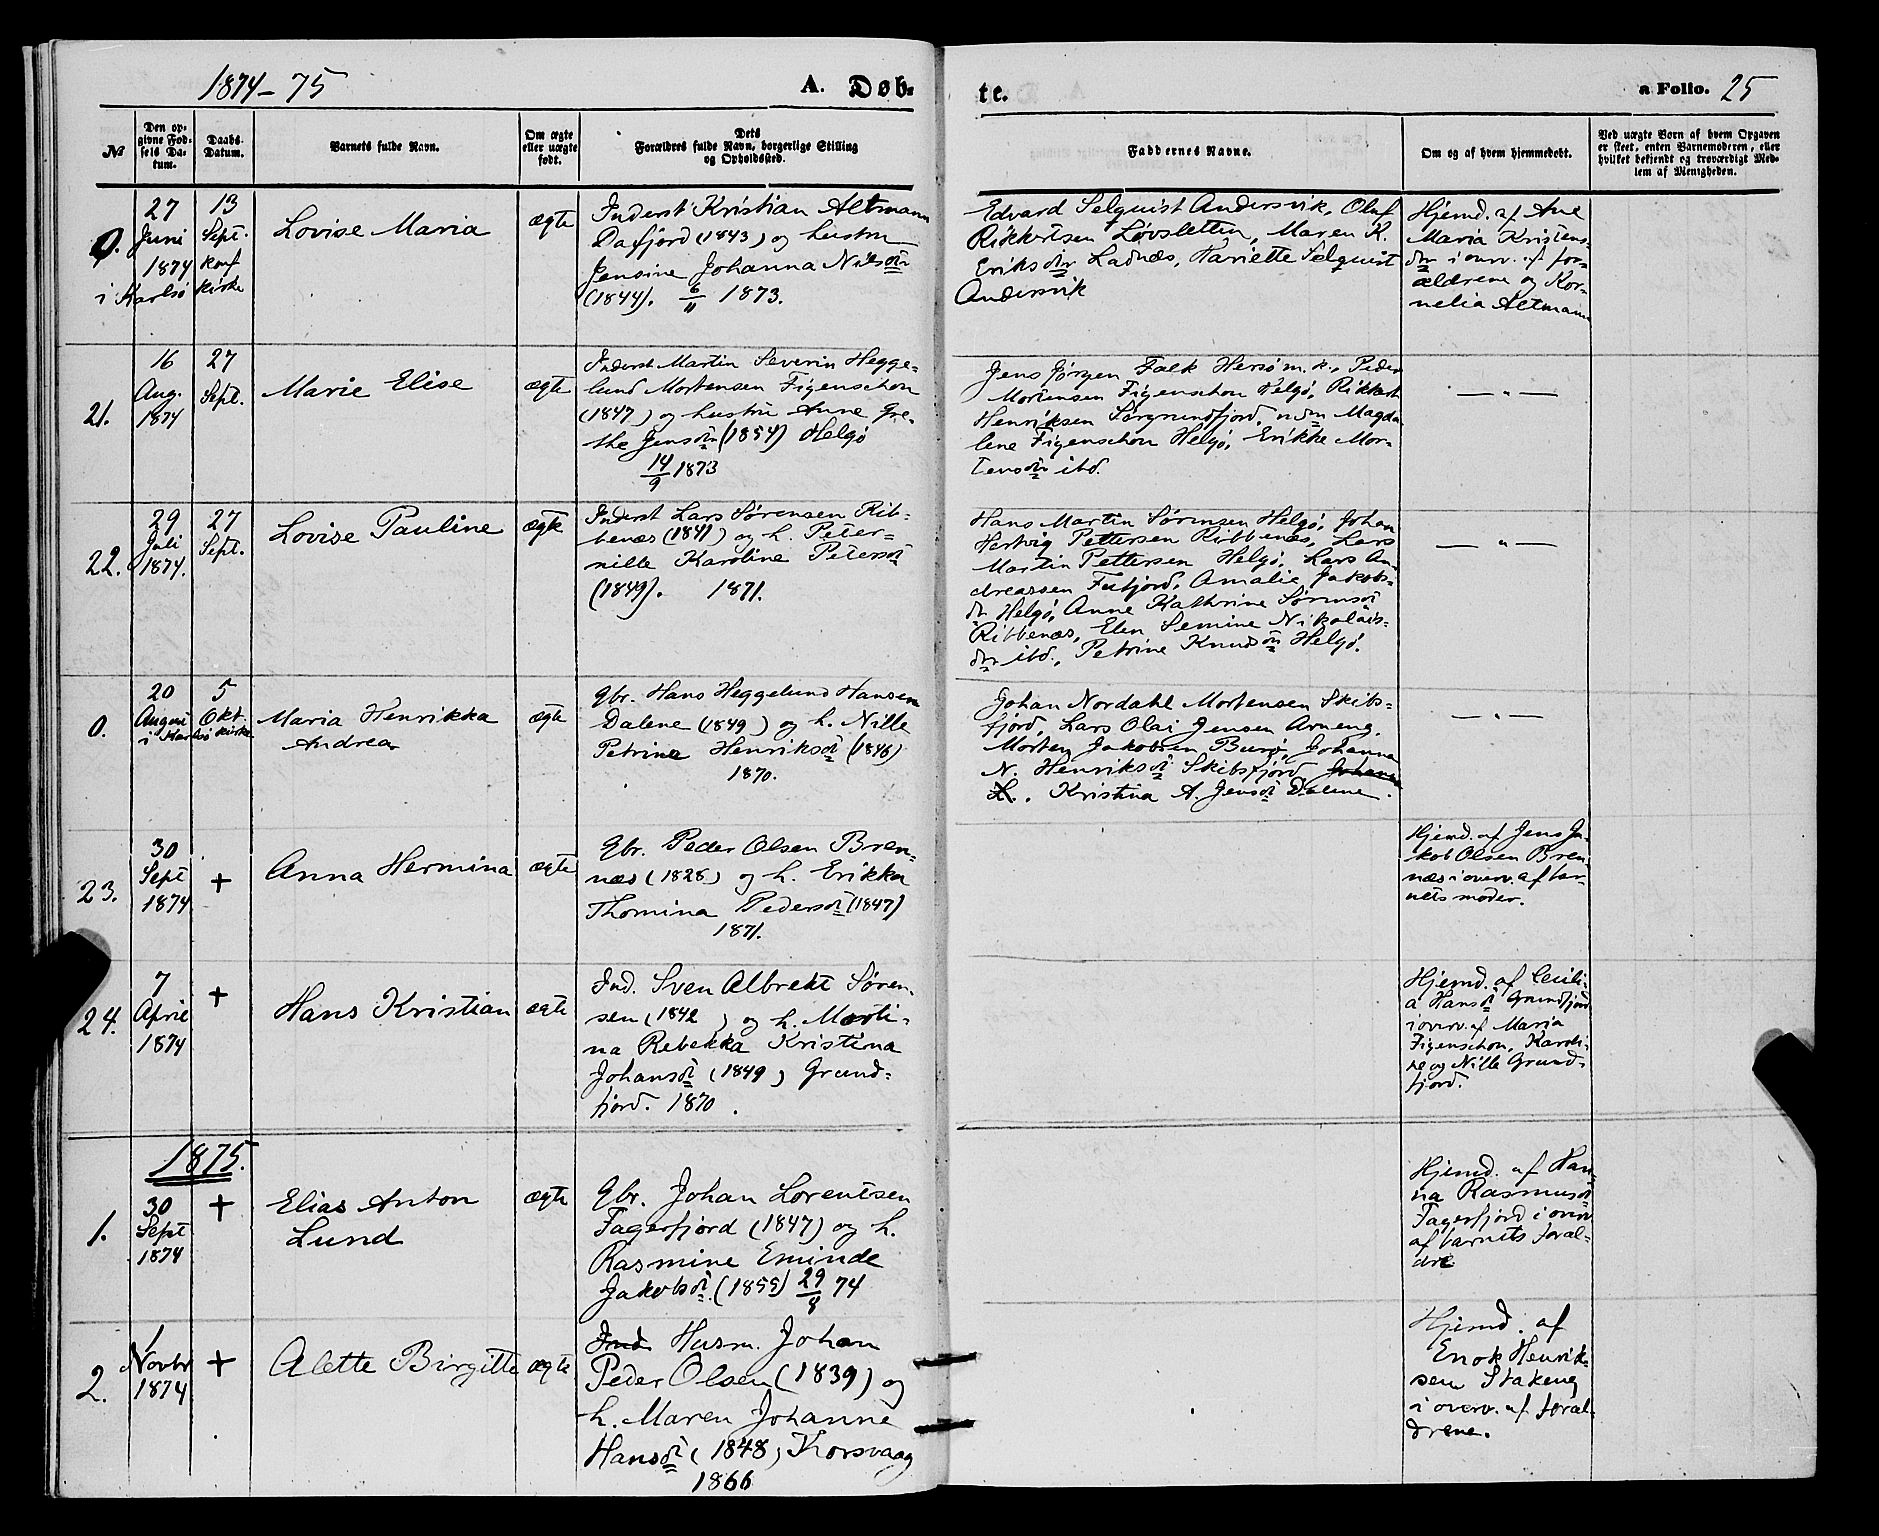 1874-75
A. Døb-
te.
a Folio. 25
№
Den op-
givne Fød-
sels Da-
tum.
Daabs-
Datum.
Barnets fulde Navn.
Om ægte
eller uægte
født.
Dets
Forældres fulde Navn, borgerlige Stilling
og Opholdssted.
Faddernes Navne.
Om og af hvem hjemmedøbt.
Ved uægte Børn af hvem Opgaven
er skeet, enten Barnemoderen, eller
hvilket bekjendt og troværdigt Med-
lem af Menigheden.
0.
27
Juni
1874
i Karlsø
13
Sept.
konf
kirke
Lovise Maria
ægte
Inderst Kristian Altmann
Dafjord (1843) og hustru
Jensine Johanna Nilsdtr
(1844). 6/11 1873.
Edvard Selquist Andersvik, Oluf
Rikkertsen Løvsletten, Maren K.
Eriksdtr Ladnæs, Hariette Selquist
Andersvik
Hjemd. af Ane
Maria Kristens-
dtr i overv. af for-
ældrene og Kor-
nelia Altmann
21.
16
Aug.
1874
27
Sept.
Marie Elise
ægte
Inderst Martin Severin Hegge-
lund Mortensen Figenschou
(1847) og hustru Anne Gre-
the Jensdtr (1854) Helgø
14/9 1873
Jens Jørgen Falk Hersø m. k., Peder
Mortensen Figenschou Helgø, Rikkart
Henriksen Sørgrundfjord, Magda
lene Figenschou Helgø, Erikke Mor-
tensdtr ibd.
— " —
22.
29
Juli
1874.
27
Sept.
Lovise Pauline
ægte
Inderst Lars Sørensen Rib-
benæs (1841) og h. Peter-
nille Karoline Petersdtr
(1849). 1871.
Hans Martin Sørensen Helgø, Johan
Hertvig Pettersen Ribbenæs, Lars
Martin Pettersen Helgø, Lars An-
dreassen Futfjord, Amalie Jakobs-
dtr Helgø, Anne Kathrine Sørensdtr
Ribbenæs, Elen Semine Nikolais-
dtr ibd., Petrine Knudsdtr Helgø.
— " —
0.
20
August
i Karlsø kirke
5
Okt.
Maria Henrikka
Andrea
ægte
Gbr. Hans Heggelund Hansen
Dalene (1849) og h. Nille
Petrine Henriksdtr (1846)
1870.
Johan Nordahl Mortensen Skibs-
fjord, Lars Olai Jensen Arneng,
Morten Jakobsen Burø, Johanna
N. Henriksdtr Skibsfjord, Johanna
L. Kristina A. Jensdtr Dalene.
— " —
23.
30
Sept
1874
+
Anna Hermina
ægte
Gbr. Peder Olsen Bren-
næs (1828) og h. Erikka
Thomina Pedersdtr (1847)
1871.
Hjemd. af Jens Ja-
kob Olsen Bren-
næs i overv. af bar-
nets moder.
24.
7
April
1874
+
Hans Kristian
ægte
Ind. Sven Albrekt Søren-
sen (1842) og h. Marti-
na Rebekka Kristina
Johansdtr (1849) Grund-
fjord. 1870.
Hjemd. af Cecili-
a Hansdtr Grundfjord
i overv. af Maria
Figenschou, Karoli-
ne og Nille Grund-
fjord.
1875.
1.
30
Sept
1874
+
Elias Anton
Lund
ægte
Gbr. Johan Lorentsen
Fagerfjord (1847) og h.
Rasmine Eminde
Jakobsdtr. (1855) 29/8 74
Hjemd. af Han-
na Rasmusdtr
Fagerfjord i overv
af barnets foræl-
dre
2.
1
Novbr
1874
+
Alette Birgitte
ægte
Ind. Husm. Johan
Peder Olsen (1839) og
h. Maren Johanne
Hansdtr (1848) Korsvaag
1866
Hjemd. af
Enok Henrik-
sen Stakeng
i overv. af foræl-
drene.